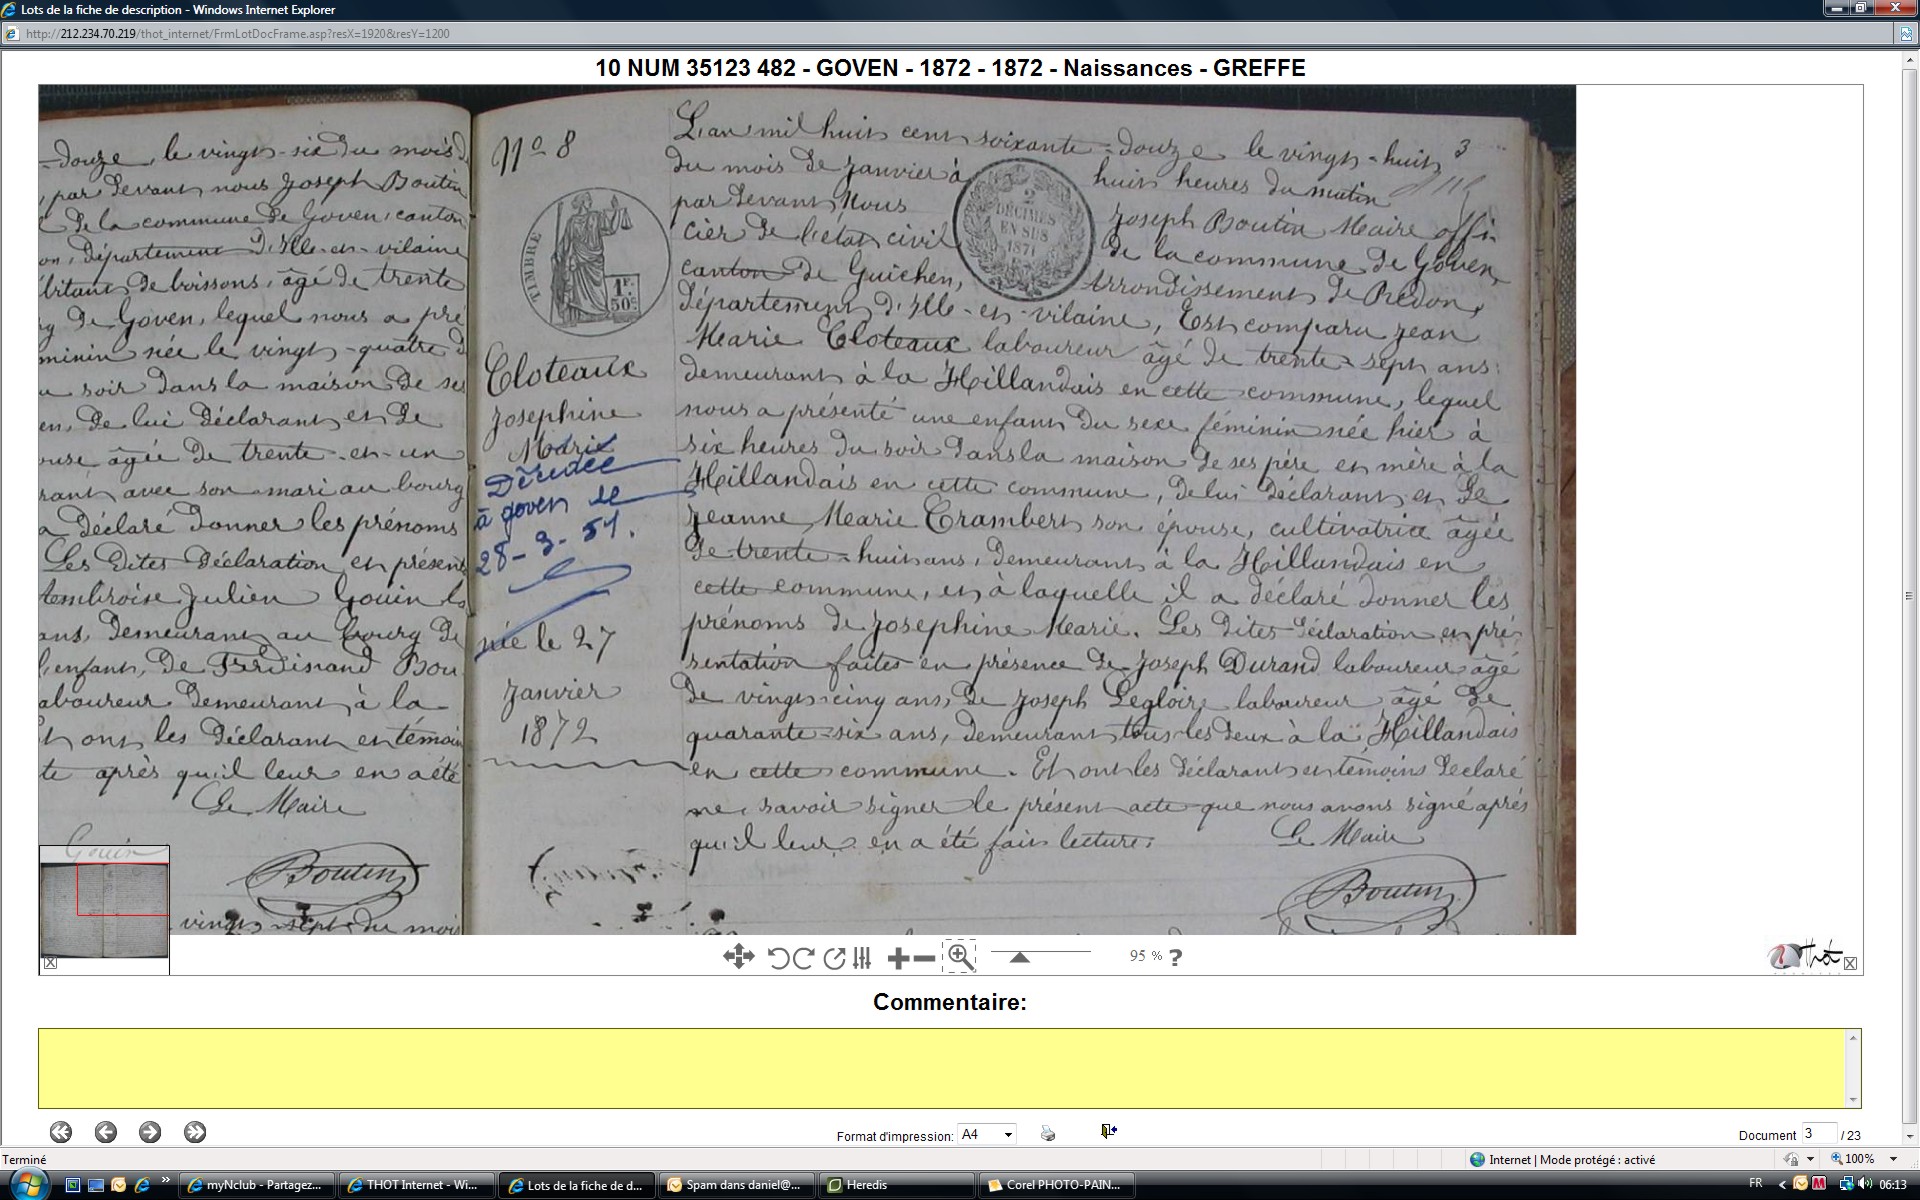 Lots de la fiche de description - Windows Internet Explorer
http://212.234.70.219/thot_internet/FrmLotDocFrame.asp?resX=1920&resY=1200
10 NUM 35123 482 - GOVEN - 1872 - 1872 - Naissances - GREFFE
-douze, le vingt-six du mois d
, par devant nous Joseph Boutin
de la commune de Goven, canton
on, département d'Ille-en-vilaine
bitant de boissons, âgé de trente
rg de Goven, lequel nous a pré
minin née le vingt-quatre d
u soir dans la maison de ses
en, de lui déclarant et de
ouse âgée de trente-en-un
rant avec son mari au bourg
a déclaré donner les prénoms
Les dites déclaration et présent
Ambroise Julien Gouin
ans, demeurant au bourg de
l'enfant, de Ferdinand Bou
aboureur demeurant à la
et ont les déclarant et témoin
te après qu'il leur en a été
Le Maire
Gouin
Boutin
vingt-sept du mois
No 8
TIMBRE
1F.
50c.
Cloteaux
Josephine
Marie
Décédée
à goven le
28-3-51.
née le 27
Janvier
1872
3
L'an mil huit cent soixante-douze le vingt-huit
du mois de Janvier à huit heures du matin
par devant Nous Joseph Boutin Maire offi-
cier de l'état civil de la commune de Goven,
canton de Guichen, Arrondissement de Redon,
département d'Ille-en-vilaine, Est comparu Jean
Marie Cloteaux laboureur âgé de trente-sept ans
demeurant à la Hillandais en cette commune, lequel
nous a présenté une enfant du sexe féminin née hier à
six heures du soir dans la maison de ses père et mère à la
Hillandais en cette commune, de lui déclarant et de
Jeanne Marie Trambert son épouse, cultivatrice âgée
de trente-huit ans, demeurant à la Hillandais en
cette commune, et à laquelle il a déclaré donner les
prénoms de Josephine Marie. Les dites déclaration et pré-
sentation faites en présence de Joseph Durand laboureur âgé
de vingt-cinq ans, de Joseph Legloire laboureur âgé de
quarante-six ans, demeurant tous les deux à la Hillandais
en cette commune. Et ont les déclarant et témoins déclaré
ne savoir signer le présent acte que nous avons signé après
qu'il leur en a été fait lecture.
Le Maire
Boutin
2
DÉCIMES
EN SUS
1871
95 %
Thot
Commentaire:
Format d'impression: A4
Document 3 / 23
Terminé
Internet | Mode protégé : activé
100%
myNclub - Partagez...
THOT Internet - Wi...
Lots de la fiche de d...
Spam dans daniel@...
Heredis
Corel PHOTO-PAIN...
FR
06:13